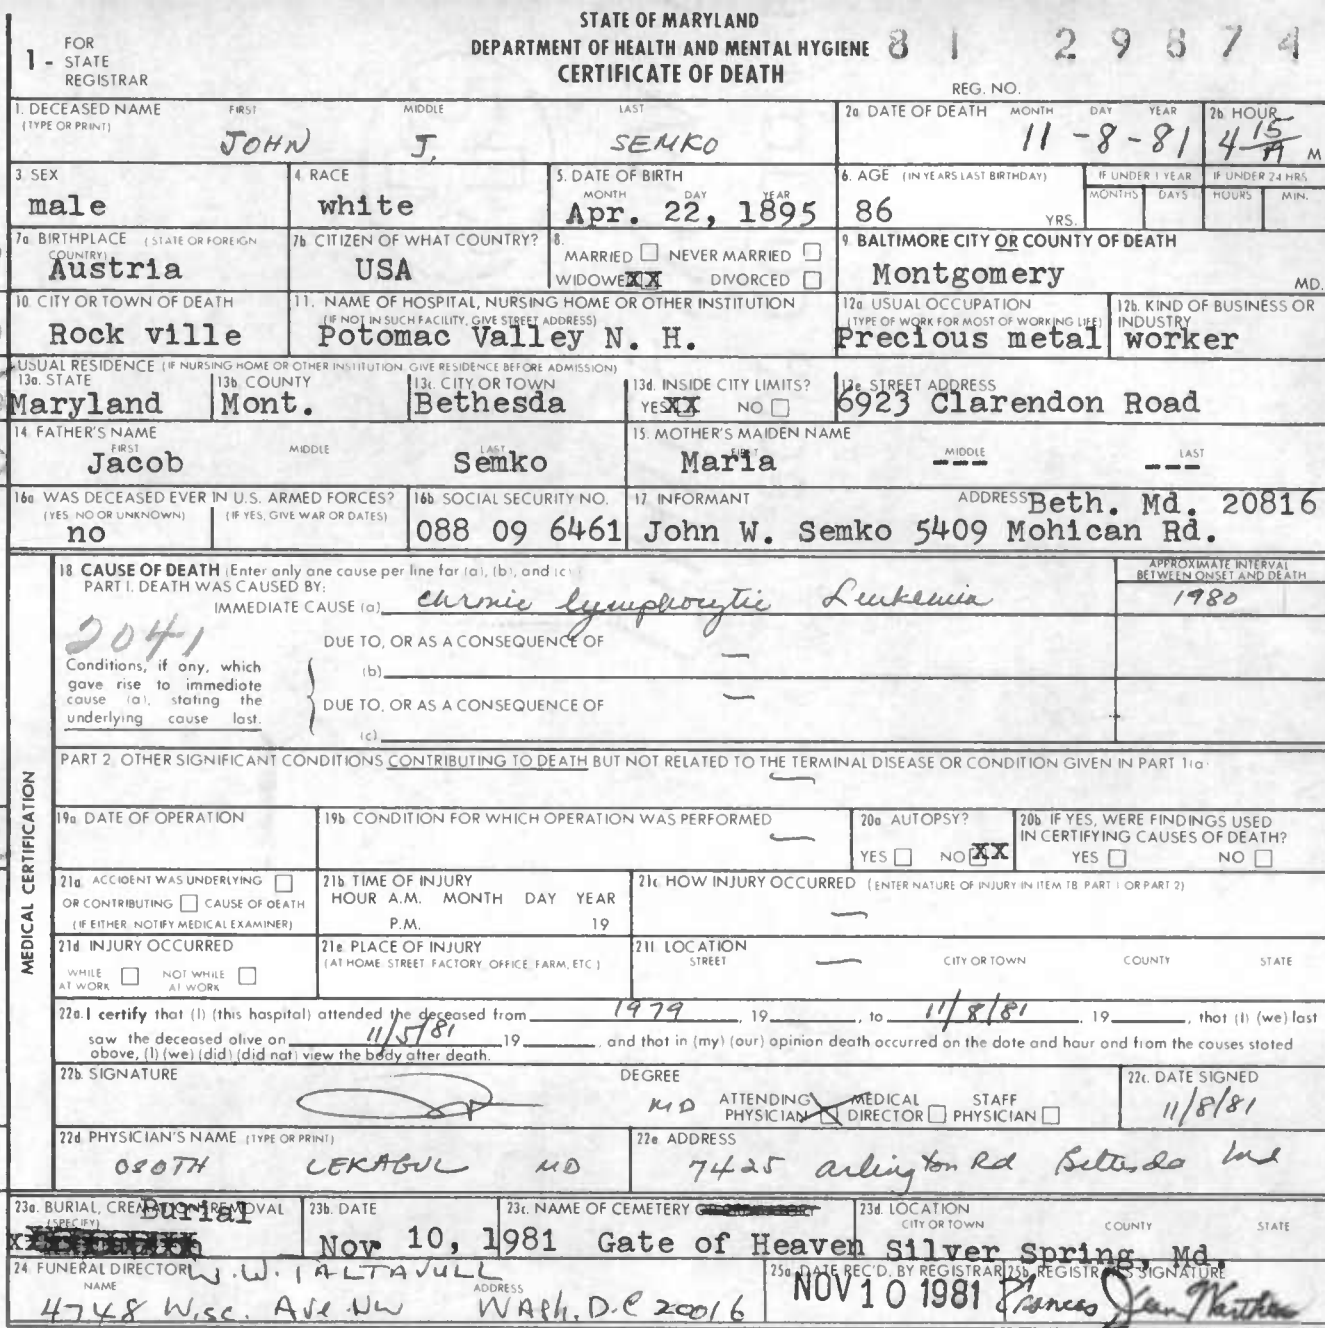 STATE OF MARYLAND
DEPARTMENT OF HEALTH AND MENTAL HYGIENE
CERTIFICATE OF DEATH
81 29874
1 - FOR STATE REGISTRAR
REG. NO.
1. DECEASED NAME (TYPE OR PRINT) FIRST MIDDLE LAST
JOHN J. SEMKO
2a DATE OF DEATH MONTH DAY YEAR
11-8-81
2b HOUR
4 15 A M
3 SEX
male
4 RACE
white
5. DATE OF BIRTH MONTH DAY YEAR
Apr. 22, 1895
6. AGE (IN YEARS LAST BIRTHDAY)
86 YRS.
IF UNDER 1 YEAR MONTHS DAYS
IF UNDER 24 HRS HOURS MIN.
7a BIRTHPLACE (STATE OR FOREIGN COUNTRY)
Austria
7b CITIZEN OF WHAT COUNTRY?
USA
8. MARRIED NEVER MARRIED
WIDOWEXX DIVORCED
9 BALTIMORE CITY OR COUNTY OF DEATH
Montgomery MD.
10. CITY OR TOWN OF DEATH
Rock ville
11. NAME OF HOSPITAL, NURSING HOME OR OTHER INSTITUTION
(IF NOT IN SUCH FACILITY, GIVE STREET ADDRESS)
Potomac Valley N. H.
12a USUAL OCCUPATION
(TYPE OF WORK FOR MOST OF WORKING LIFE)
Precious metal
12b. KIND OF BUSINESS OR INDUSTRY
worker
USUAL RESIDENCE (IF NURSING HOME OR OTHER INSTITUTION GIVE RESIDENCE BEFORE ADMISSION)
13a. STATE
Maryland
13b. COUNTY
Mont.
13c. CITY OR TOWN
Bethesda
13d. INSIDE CITY LIMITS?
YES XX NO
13e STREET ADDRESS
6923 Clarendon Road
14 FATHER'S NAME FIRST MIDDLE LAST
Jacob Semko
15. MOTHER'S MAIDEN NAME FIRST MIDDLE LAST
Maria --- ---
16a WAS DECEASED EVER IN U.S. ARMED FORCES?
(YES, NO OR UNKNOWN) (IF YES, GIVE WAR OR DATES)
no
16b SOCIAL SECURITY NO.
088 09 6461
17. INFORMANT ADDRESS Beth. Md. 20816
John W. Semko 5409 Mohican Rd.
MEDICAL CERTIFICATION
18 CAUSE OF DEATH (Enter only one cause per line for (a), (b), and (c))
PART I. DEATH WAS CAUSED BY:
IMMEDIATE CAUSE (a) chronic lymphocytic Leukemia
APPROXIMATE INTERVAL BETWEEN ONSET AND DEATH
1980
2041
Conditions, if any, which
gave rise to immediate
cause (a), stating the
underlying cause last.
DUE TO, OR AS A CONSEQUENCE OF
(b) —
DUE TO, OR AS A CONSEQUENCE OF —
(c)
PART 2 OTHER SIGNIFICANT CONDITIONS CONTRIBUTING TO DEATH BUT NOT RELATED TO THE TERMINAL DISEASE OR CONDITION GIVEN IN PART 1(a)
—
19a DATE OF OPERATION
19b CONDITION FOR WHICH OPERATION WAS PERFORMED
—
20a AUTOPSY?
YES NO XX
20b IF YES, WERE FINDINGS USED
IN CERTIFYING CAUSES OF DEATH?
YES NO
21a ACCIDENT WAS UNDERLYING
OR CONTRIBUTING CAUSE OF DEATH
(IF EITHER NOTIFY MEDICAL EXAMINER)
21b TIME OF INJURY
HOUR A.M. MONTH DAY YEAR
P.M. 19
21c HOW INJURY OCCURRED (ENTER NATURE OF INJURY IN ITEM 18 PART 1 OR PART 2)
—
21d INJURY OCCURRED
WHILE AT WORK NOT WHILE AT WORK
21e PLACE OF INJURY
(AT HOME STREET FACTORY, OFFICE, FARM, ETC)
21f LOCATION
STREET — CITY OR TOWN COUNTY STATE
22a. I certify that (I) (this hospital) attended the deceased from 1979, 19, to 11/8/81, 19, that (I) (we) last
saw the deceased alive on 11/5/81 19, and that in (my) (our) opinion death occurred on the date and hour and from the causes stated
above, (I) (we) (did) (did not) view the body after death.
22b. SIGNATURE
DEGREE
MD
ATTENDING PHYSICIAN X MEDICAL DIRECTOR STAFF PHYSICIAN
22c. DATE SIGNED
11/8/81
22d PHYSICIAN'S NAME (TYPE OR PRINT)
OSOTH LEKAGUL MD
22e ADDRESS
7425 arlington Rd Bethesda Md
23a. BURIAL, CREMATION, REMOVAL (SPECIFY)
Burial
23b. DATE
Nov 10, 1981
23c. NAME OF CEMETERY OR CREMATORY
Gate of Heaven
23d. LOCATION CITY OR TOWN COUNTY STATE
Silver Spring, Md.
24 FUNERAL DIRECTOR NAME ADDRESS
W.W. TALTAVULL
4748 Wisc. Ave NW WASH. D.C 20016
25a DATE REC'D. BY REGISTRAR
NOV 10 1981
25b. REGISTRAR'S SIGNATURE
Frances Jean